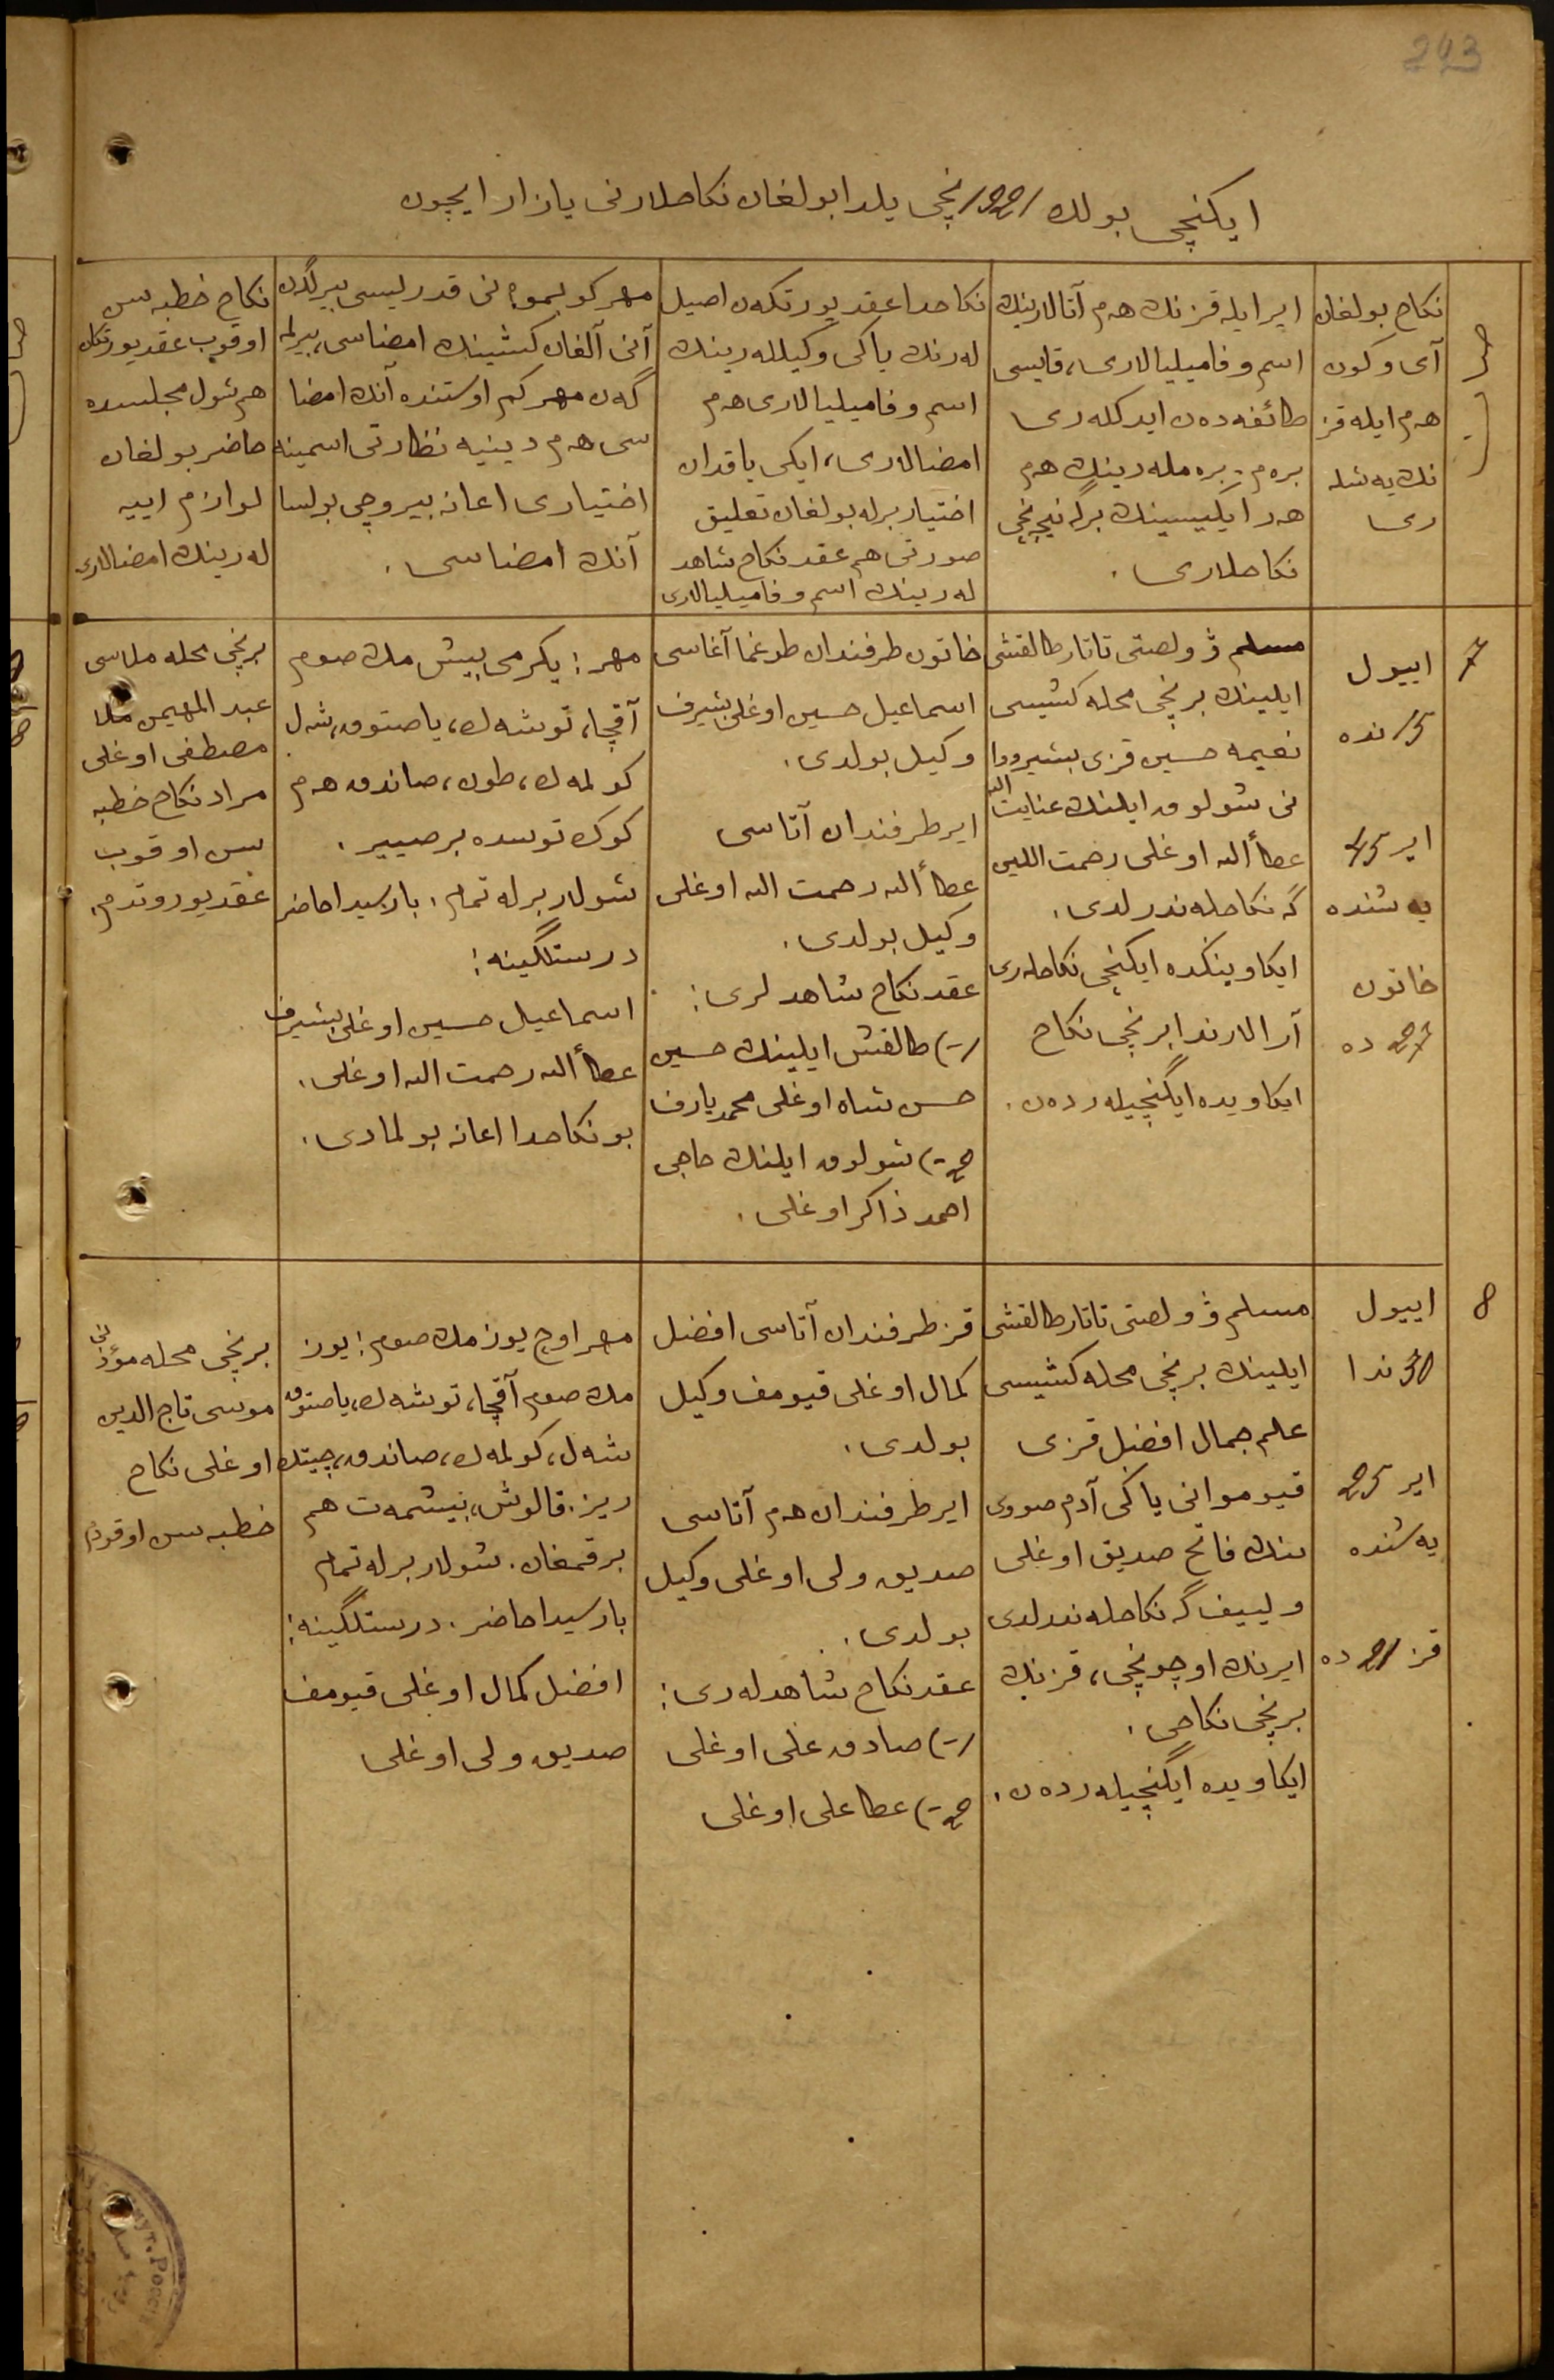 243
ایکنچی بولك 1921 نچی یلدا بولغان نکاحلارنی یازار ایچون
نکاح بولغان
آی و کون
هه‌م ایله قز
نك یه‌شله
ری
ایر ایله قزنك هه‌م آتالارینك
اسم و فامیلیالاری، قایسی
طائفه‌ده‌ن ایدکله‌ری
بره‌م ـ بره‌مله‌رینك هه‌م
هه‌ر ایکیسینك برگه نیچه‌نچی
نکاحلاری.
نکاحدا عقد یورتکه‌ن اصیل
له‌رنك یاکی وکیلله‌رینك
اسم و فامیلیالاری هه‌م
امضالاری، ایکی یاقدان
اختیار برله بولغان تعلیق
صورتی هم عقد نکاح شاهد
له‌رینك اسم و فامیلیالاری
مهر کوبمو؟ نی قدرلیسی بیرلگن
آنی آلغان کشینك امضاسی، بیرلمه
گه‌ن مهر کم اوستنده آنك امضا
سی هه‌م دینیه نظارتی اسمینه
اختیاری اعانه بیروچی بولسا
آنك امضاسی.
نکاح خطبه‌سن
اوقوب عقد یورتکان
هم شول مجلسده
حاضر بولغان
لوازم اییه
له‌رینك امضالاری
7
اییول
15 نده
ایر 45
یه‌شنده
خاتون
27 ده
مسلم ڤولصتی تاتار طالقشی
ایلینك برنچی محله کشیسی
نعیمه حسین قزی بشیرووا
نی شولوق ایلنك عنایت الله
عطأ الله اوغلی رحمت اللین
گه نکاحله‌ندرلدی.
ایکاوینکده ایکنچی نکاحله‌ری
آرالارندا برنچی نکاح
ایکاویده ایگنچیله‌رده‌ن.
خاتون طرفندان طوغما آغاسی
اسماعیل حسین اوغلی بشیرف
وکیل بولدی.
ایر طرفندان آتاسی
عطأ الله رحمت الله اوغلی
وکیل بولدی.
عقد نکاح شاهدلری:
1-) طالقش ایلینك حسین
حسن شاه اوغلی محمدیارف
2-) شولوق ایلنك حاجی
احمد ذاکر اوغلی.
مهر: یکرمی بیش مك صوم
آقچا، توشه‌ك، یاصتوق، شه‌ل
کولمه‌ك، طون، صاندق هه‌م
کوك توسده بر صییر.
شولار برله تمام. بارسیدا حاضر
درستلگینه:
اسماعیل حسین اوغلی بشیرف
عطأ الله رحمت الله اوغلی.
بو نکاحدا اعانه بولمادی.
برنچی محله ملاسی
عبد المهیمن ملا
مصطفی اوغلی
مراد نکاح خطبه
سن اوقوب
عقد یوروتدم.
8
اییول
30 ندا
ایر 25
یه‌شنده
قز 21 ده
مسلم ڤولصتی تاتار طالقشی
ایلینك برنچی محله کشیسی
علم جمال افضل قزی
قیومووانی یاکی آدم صووی
نك فاتح صدیق اوغلی
ولییف گه نکاحله‌ندرلدی
ایرنك اوچونچی، قزنك
برنچی نکاحی.
ایکاویده ایگنچیله‌رده‌ن.
قز طرفندان آتاسی افضل
کمال اوغلی قیومف وکیل
بولدی.
ایر طرفندان هه‌م آتاسی
صدیق ولی اوغلی وکیل
بولدی.
عقد نکاح شاهدله‌ری:
1-) صادق علی اوغلی
2-) عطا علی اوغلی
مهر اوچ یوز مك صوم: یوز
مك صوم آقچا، توشه‌ك، یاصتوق
شه‌ل، کولمه‌ك، صاندق، چیتك
ریز. قالوش، بیشمه‌ت هم
بر قمغان. شولار برله تمام
بارسیدا حاضر. درستلگینه:
افضل کمال اوغلی قیومف
صدیق ولی اوغلی
برنچی محله مؤذنی
موسی تاج الدین
اوغلی نکاح
خطبه‌سن اوقودم